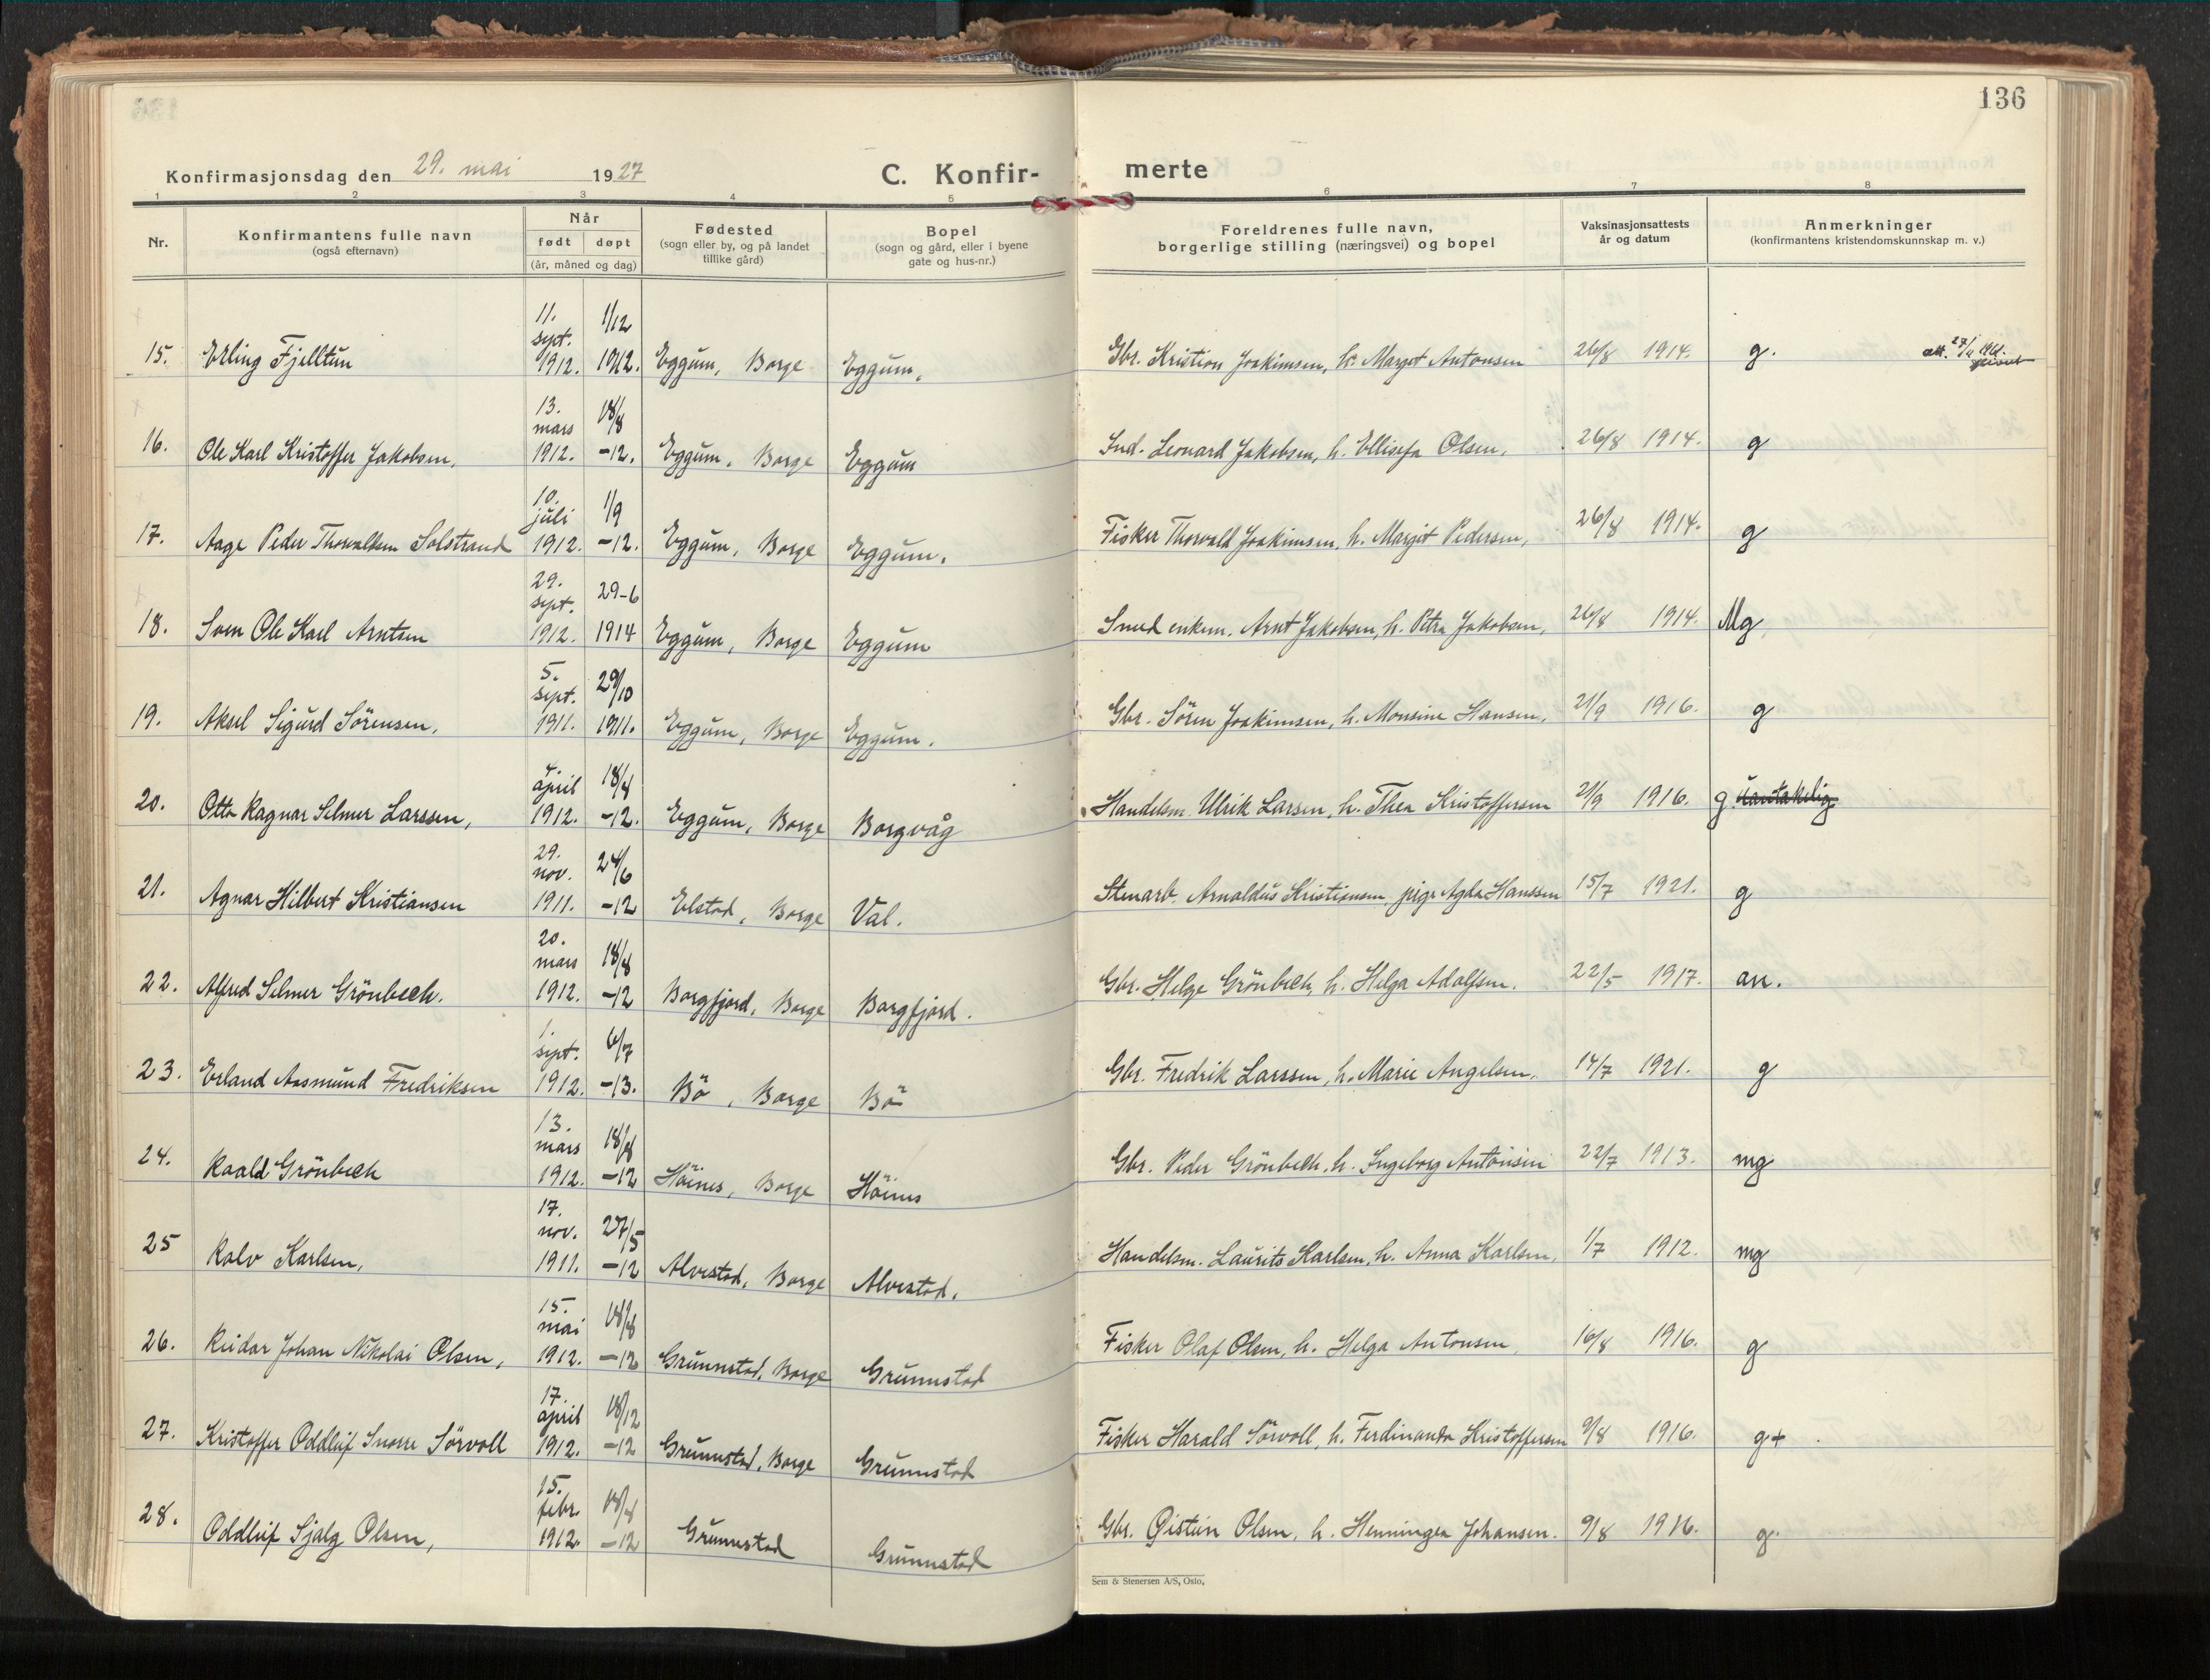 136
Konfirmasjonsdag den 29. mai 1927
C. Konfir- merte
1 2 3 4 5 6 7 8
Nr.
Konfirmantens fulle navn
(også efternavn)
Når
født døpt
(år, måned og dag)
Fødested
(sogn eller by, og på landet
tillike gård)
Bopel
(sogn og gård, eller i byene
gate og hus-nr.)
Foreldrenes fulle navn,
borgerlige stilling (næringsvei) og bopel
Vaksinasjonsattests
år og datum
Anmerkninger
(konfirmantens kristendomskunnskap m. v.)
15. Erling Fjelltun 11. sept. 1912. 1/12 1912. Eggum, Borge Eggum. Gbr. Kristian Joakimsen, h. Margit Antonsen 26/8 1914. g. att. 27/
16. Ole Karl Kristoffer Jakobsen. 13. mars 1912. 18/8 -12. Eggum, Borge Eggum Snd. Leonard Jakobsen, h. Ellisefa Olsen. 26/8 1914. g
17. Aage Peder Thorvaldsen Solstrand 10. juli 1912. 1/9 -12. Eggum, Borge Eggum. Fisker Thorvald Joakimsen, h. Margit Pedersen, 26/8 1914. g
18. Sven Ole Karl Arntsen 29. sept. 1912. 29-6 1914 Eggum, Borge Eggum Smed enkem. Arnt Jakobsen, h. Petra Jakobsen, 26/8 1914. Mg
19. Aksel Sigurd Sörensen. 5. sept. 1911. 29/10 1911. Eggum, Borge Eggum. Gbr. Sören Joakimsen, h. Monsine Hansen. 21/9 1916. g
20. Otto Ragnar Selmer Larssen, 4. april 1912. 18/8 -12. Eggum, Borge Borgvåg Handelsm. Ulrik Larsen, h. Thea Kristoffersen 21/9 1916. g
21. Agnar Hilbert Kristiansen 29. nov. 1911. 24/6 -12 Elstad, Borge Val. Stenarb. Arnoldus Kristiansen, pige Agda Hanssen 15/7 1921. g
22. Alfred Selmer Grönbech. 20. mars 1912. 18/8 -12 Borgfjord, Borge Borgfjord. Gbr. Helge Grönbech, h. Helga Adolfsen. 22/5 1917. an.
23. Erland Aasmund Fredriksen 1. sept. 1912. 6/7 -13. Bö, Borge Bö Gbr. Fredrik Larssen, h. Marie Angelsen. 14/7 1921. g
24. Roald Grönbech 13. mars 1912. 18/8 -12 Höines, Borge Höines Gbr. Peder Grönbech, h. Ingeborg Antonsen 22/7 1913. mg
25 Rolv Karlsen, 17. nov. 1911. 27/5 -12 Alvestad, Borge Alvestad. Handelsm. Laurits Karlsen, h. Anna Karlsen, 1/7 1912. mg
26. Reidar Johan Nikolai Olsen, 15. mai 1912. 18/8 -12 Grunnstad, Borge Grunnstad Fisker Olaf Olsen, h. Helga Antonsen, 16/8 1916. g
27. Kristoffer Oddleif Snorre Sörvoll 17. april 1912. 18/12 -12 Grunnstad, Borge Grunnstad Fisker Harald Sörvoll, h. Ferdinanda Kristoffersen 9/8 1916. g+
28. Oddleif Sjalg Olsen, 15. febr. 1912. 18/8 -12 Grunnstad Grunnstad Gbr. Eistein Olsen, h. Henningea Johansen. 9/8 1916. g.
Sem & Stenersen A/S, Oslo.